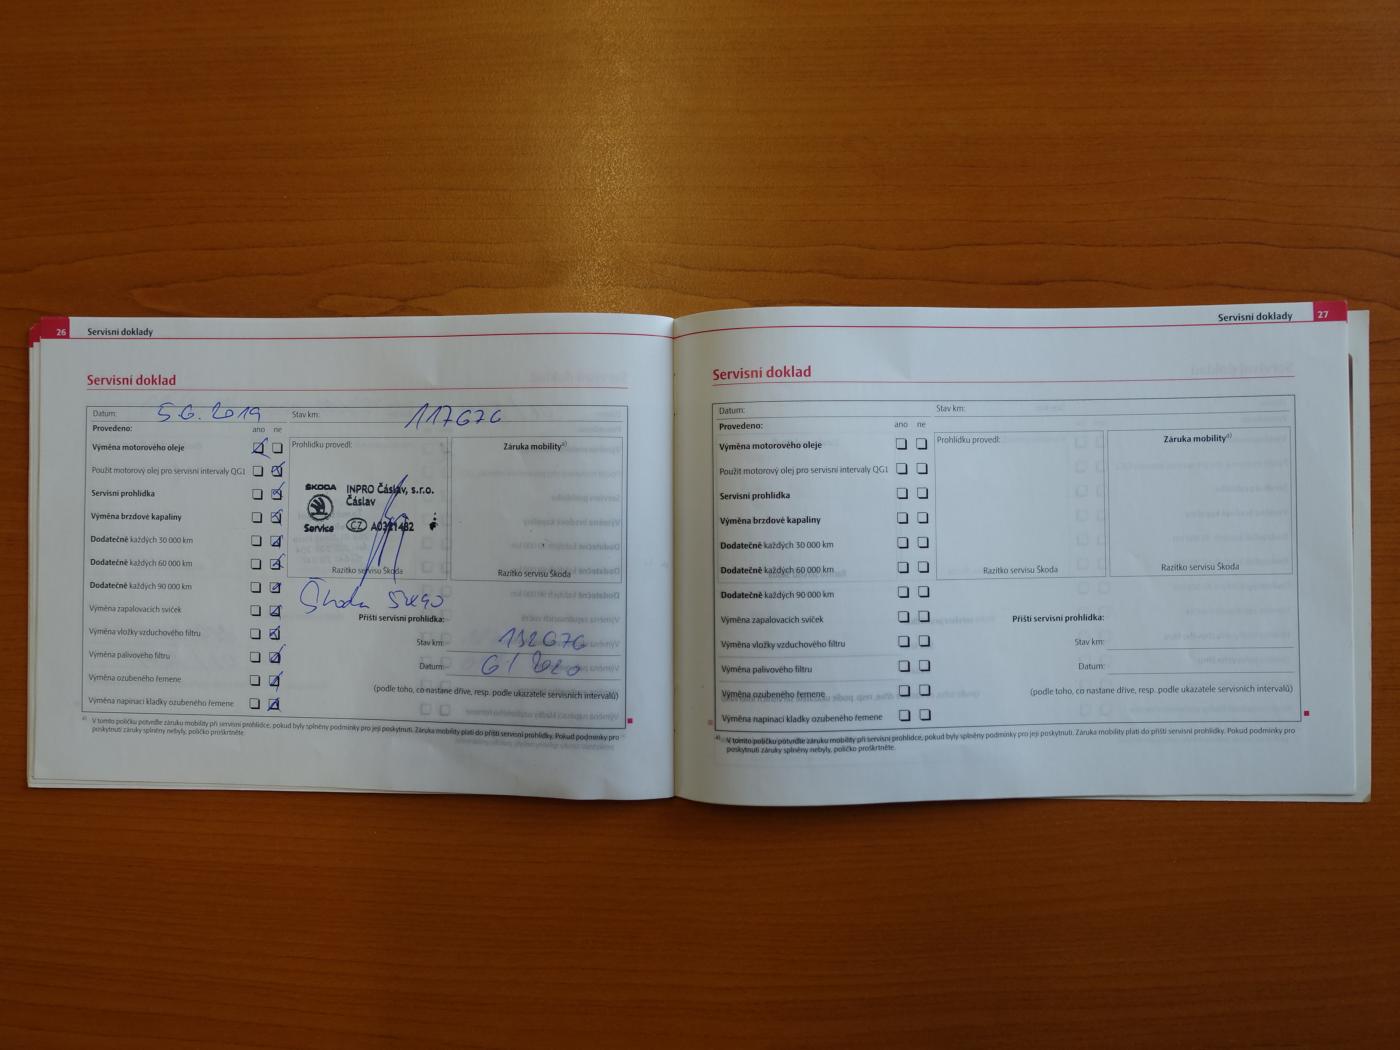 26 Servisní doklady
Servisní doklad
Datum: 5.6.2019 Stav km: 117676
Provedeno: ano ne
Výměna motorového oleje
Použit motorový olej pro servisní intervaly QG1
Servisní prohlídka
Výměna brzdové kapaliny
Dodatečně každých 30 000 km
Dodatečně každých 60 000 km
Dodatečně každých 90 000 km
Výměna zapalovacích svíček
Výměna vložky vzduchového filtru
Výměna palivového filtru
Výměna ozubeného řemene
Výměna napínací kladky ozubeného řemene
Prohlídku provedl:
ŠKODA
Service
INPRO Čáslav, s.r.o.
Čáslav
CZ A0321482
Razítko servisu Škoda
Záruka mobility a)
Razítko servisu Škoda
Škoda 5W40
Příští servisní prohlídka:
Stav km: 132676
Datum: 6/2020
(podle toho, co nastane dříve, resp. podle ukazatele servisních intervalů)
a) V tomto políčku potvrďte záruku mobility při servisní prohlídce, pokud byly splněny podmínky pro její poskytnutí. Záruka mobility platí do příští servisní prohlídky. Pokud podmínky pro
poskytnutí záruky splněny nebyly, políčko proškrtněte.
Servisní doklady 27
Servisní doklad
Datum: Stav km:
Provedeno: ano ne
Výměna motorového oleje
Použit motorový olej pro servisní intervaly QG1
Servisní prohlídka
Výměna brzdové kapaliny
Dodatečně každých 30 000 km
Dodatečně každých 60 000 km
Dodatečně každých 90 000 km
Výměna zapalovacích svíček
Výměna vložky vzduchového filtru
Výměna palivového filtru
Výměna ozubeného řemene
Výměna napínací kladky ozubeného řemene
Prohlídku provedl:
Razítko servisu Škoda
Záruka mobility a)
Razítko servisu Škoda
Příští servisní prohlídka:
Stav km:
Datum:
(podle toho, co nastane dříve, resp. podle ukazatele servisních intervalů)
a) V tomto políčku potvrďte záruku mobility při servisní prohlídce, pokud byly splněny podmínky pro její poskytnutí. Záruka mobility platí do příští servisní prohlídky. Pokud podmínky pro
poskytnutí záruky splněny nebyly, políčko proškrtněte.